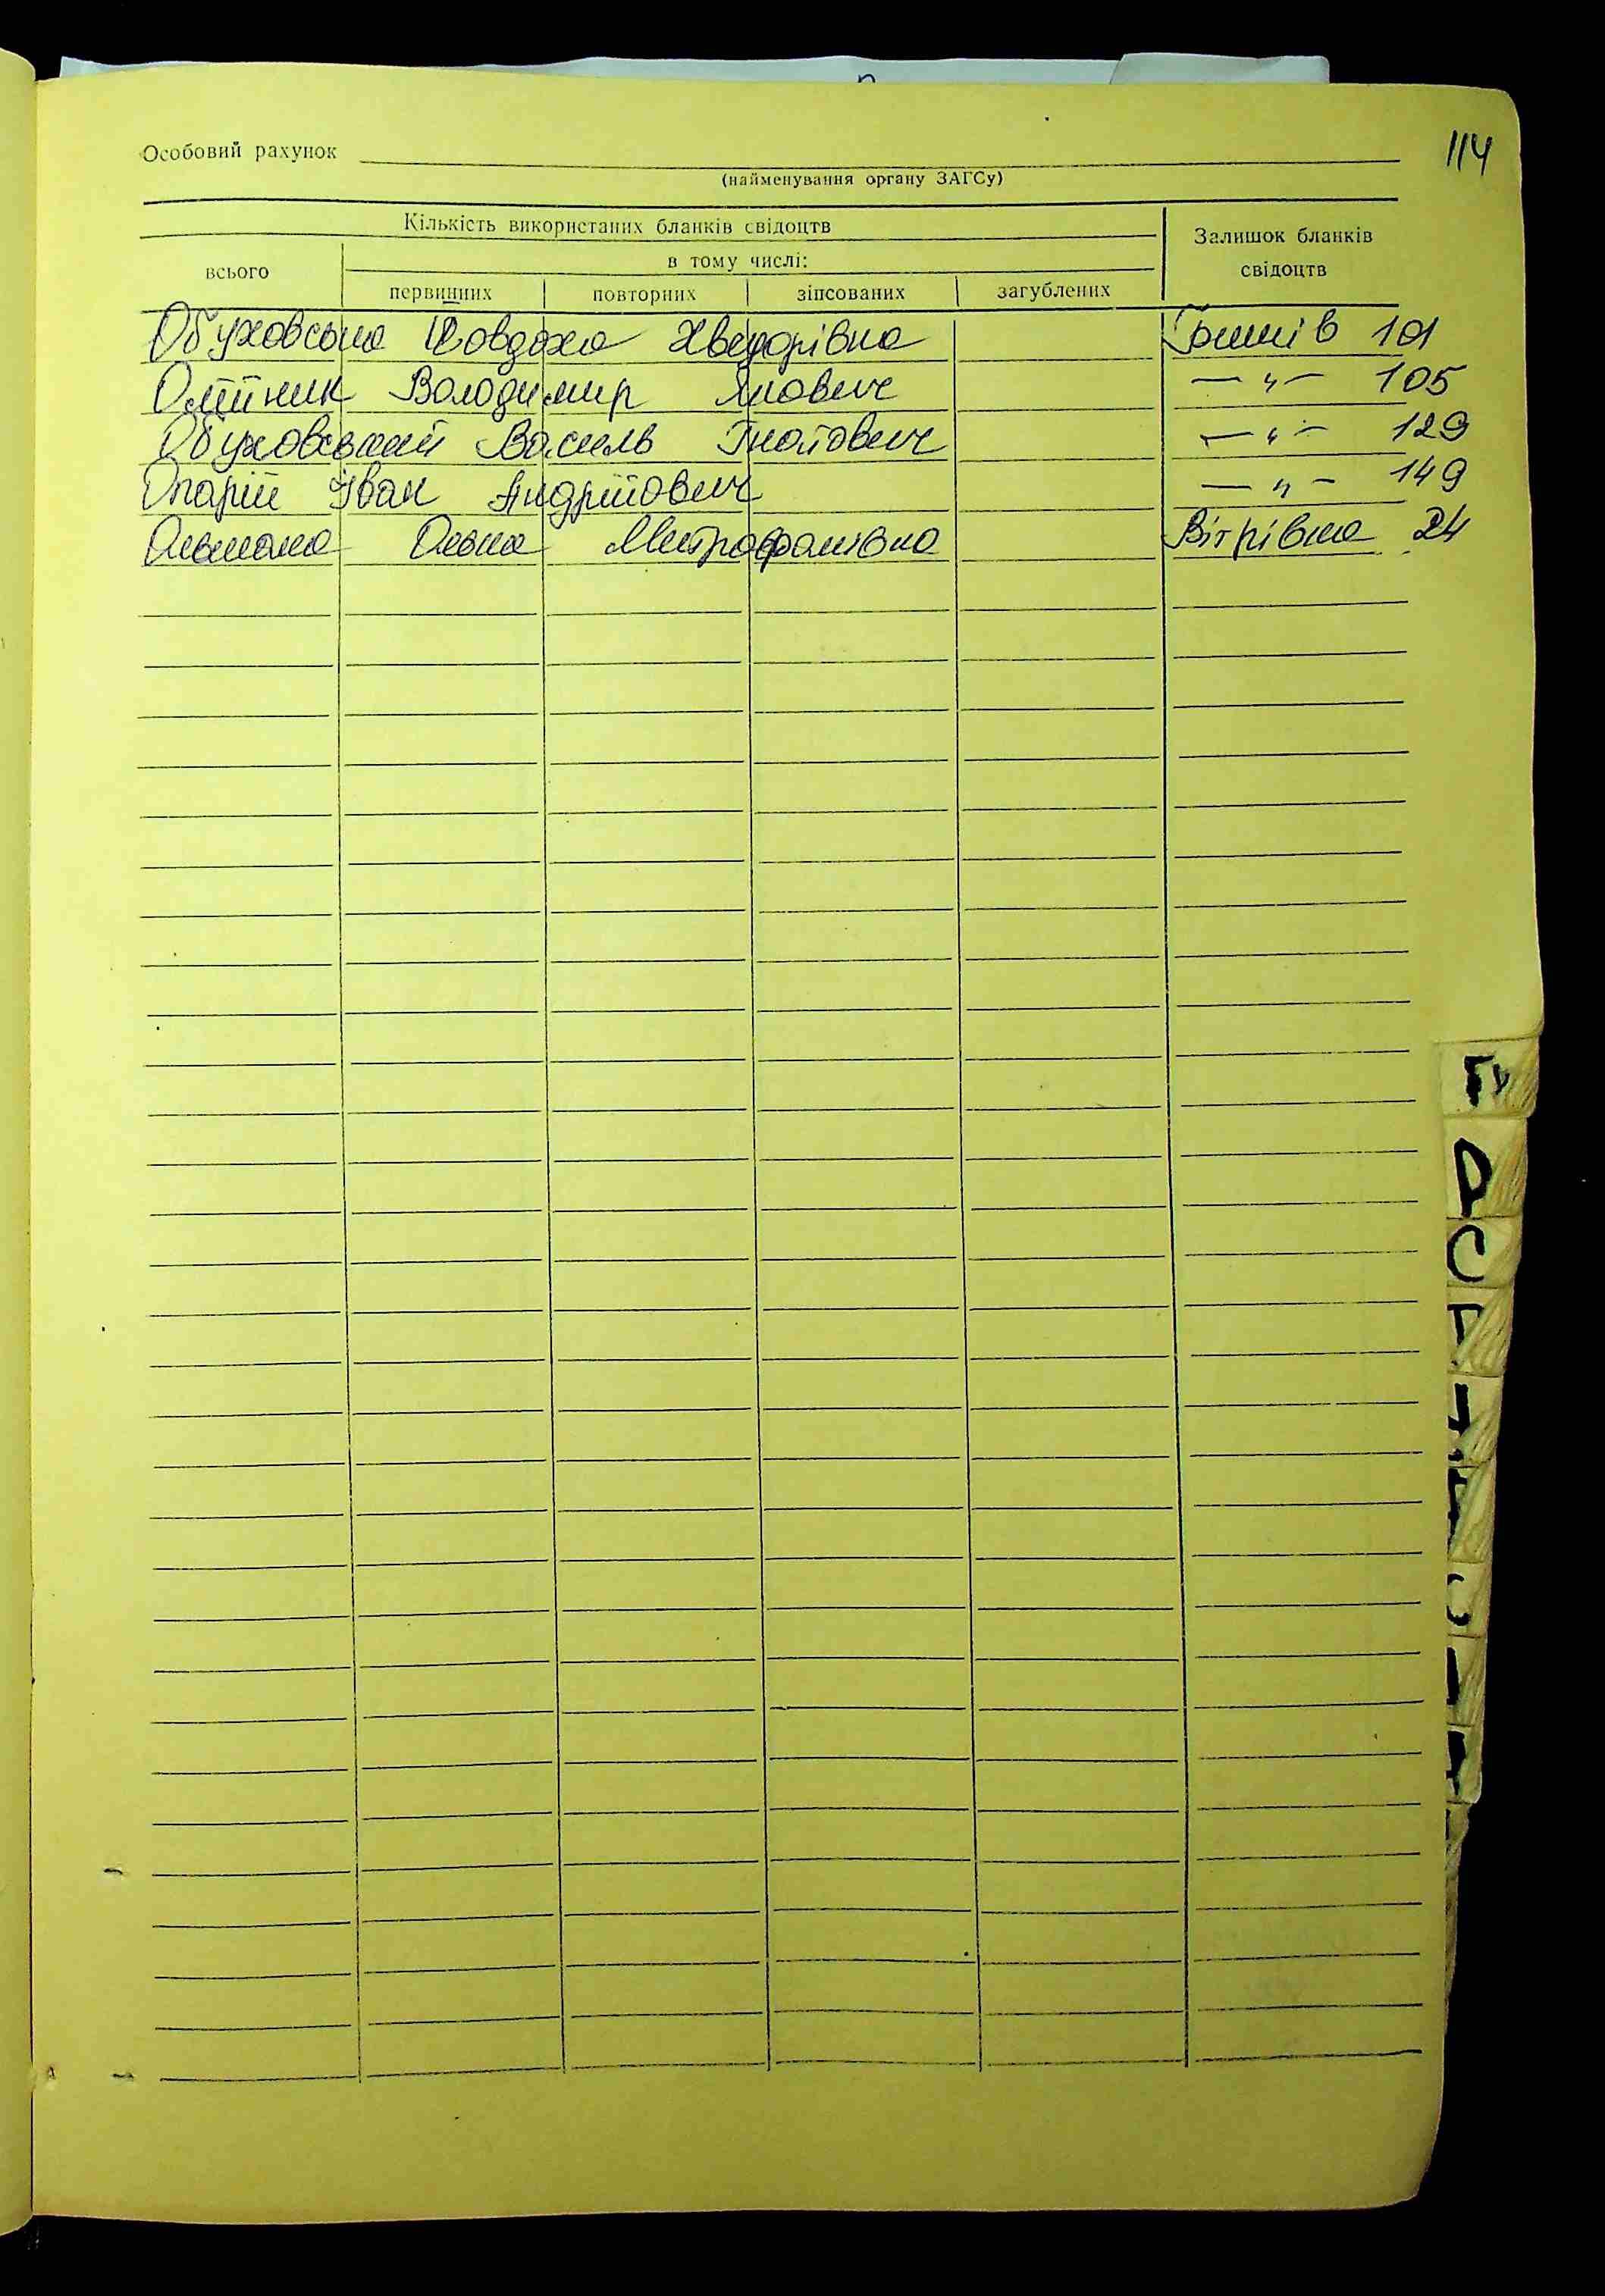 114
Особовий рахунок
(найменування органу ЗАГСу)
Кількість використаних бланків свідоцтв
Залишок бланків свідоцтв
всього
в тому числі:
первинних повторних зіпсованих загублених
Обуховська Явдоха Хведорівна 101
Олійник Володимир Якович — „ — 105
Обуховський Василь Гнатович — „ — 129
Опарій Іван Андрійович — „ — 149
Ольга Митрофанівна Вітрівка 24
Р
С
Т